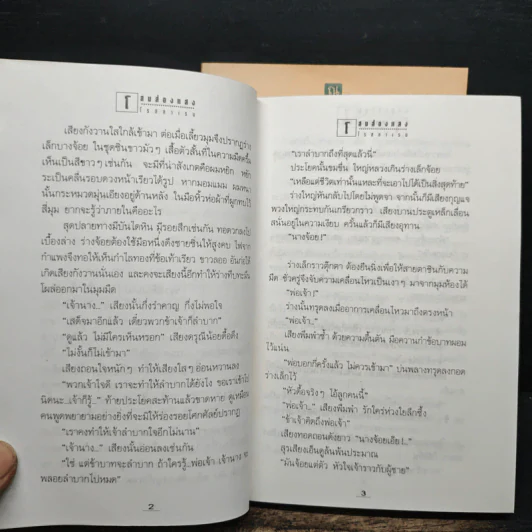 เสียงกังวานใสใกล้เข้ามา ต่อเมื่อเลี้ยวมุมจึงปรากฏร่าง
เล็กบางจ้อย ในชุดซิ่นขาวมัวๆ เสื้อตัวสั้นที่ในความมืดขึ้น
เห็นเป็นสีขาวๆ เช่นกัน จะมีที่น่าสังเกตคือผมหยิก หยัก
ระเป็นคลื่นรอบดวงหน้าเรียวได้รูป หากมอมแมม ผมหนา
นั้นกระหมวดมุ่นเอียงอยู่ด้านหลัง ในมือหิ้วห่อผ้าที่ผูกทบไว้
สี่มุม ยากจะรู้ว่าภายในคืออะไร
สุดปลายทางมีบันไดหิน มีรอยสึกเช่นกัน ทอดวกลงไป
เบื้องล่าง ร่างจ้อยต้องใช้มือหนึ่งดึงชายซิ่นให้สูงขึ้น ไฟจาก
กำแพงจึงทอให้เห็นกำไลทองที่ข้อเท้าเรียว ขาวลออ อันก่อให้
เกิดเสียงกังวานนั่นเอง และคงจะเสียงนี้อีกทำให้ร่างที่ทะมึน
โผล่ออกมาในมุมมืด
“เจ้านาง..” เสียงนั้นกึ่งรำคาญ กึ่งไม่พอใจ
“เสด็จมาอีกแล้ว เดี๋ยวพวกข้าเจ้าก็ลำบาก”
“ดูแล้ว ไม่มีใครเห็นหรอก” เสียงดรุณีน้อยดื้อดึง
“ไม่งั้นก็ไม่เข้ามา”
เสียงถอนใจหนักๆ ทำให้เสียงใสๆ อ่อนหวานลง
“พวกเจ้าใจดี เราจะทำให้ลำบากได้ยังไง ขอเราเข้าไป
นิดนะ..เจ้าก็รู้..” ท้ายประโยคสะท้านแล้วขาดหาย ดูเหมือน
คนพูดพยายามอย่างยิ่งที่จะมิให้ร่องรอยโศกศัลย์ปรากฏ
“เราคงทำให้เจ้าลำบากใจอีกไม่นาน”
“เจ้านาง..” เสียงนั้นอ่อนลงเช่นกัน
“ใช่ แต่ข้าบาทจะลำบาก ถ้าใครรู้..พ่อเจ้า เจ้านาง จะ
พลอยลำบากไปหมด”
2
“เราลำบากถึงที่สุดแล้วนี่”
ประโยคนั้นขมขื่น ใหญ่หลวงเกินร่างเล็กจ้อย
“เหลือแต่ชีวิตเท่านั้นแหละที่จะเอาไปได้เป็นสิ่งสุดท้าย”
ร่างใหญ่หันกลับไปโดยไม่พูดจา จากนั้นก็มีเสียงกุญแจ
พวงใหญ่กระทบกันเกรียวกราว เสียงบานประตูเหล็กเลื่อน
สนั่นอยู่ในความเงียบ ครั้นแล้วก็มีเสียงอุทาน
“นางจ้อย!”
ร่างเล็กราวตุ๊กตา ต้องยืนนิ่งเพื่อให้สายตาชินกับความ
มืด ชั่วครู่จึงจับความเคลื่อนไหวเป็นเงาๆ มาจากมุมห้องได้
“พ่อเจ้า!”
ร่างนั้นทรุดลงเมื่ออาการเคลื่อนไหวมาถึงตรงหน้า
“พ่อเจ้า..”
เสียงพึมพำซ้ำ ด้วยความตื้นตัน มือควานกำข้อบาทผอม
ไว้แน่น
“พ่อบอกกี่ครั้งแล้ว ไม่ควรเข้ามา” บ่นพลางทรุดลงกอด
ร่างเล็กไว้
“หัวดื้อจริงๆ โอ้ลูกคนนี้”
“พ่อเจ้า..” เสียงพึมพำ รักใคร่ห่วงใยลึกซึ้ง
“ข้าเจ้าคิดถึงพ่อเจ้า”
เสียงทอดถอนดังยาว “นางจ้อยเอ๊ย!..”
สุรเสียงเอ็นดูล้นพ้นประมาณ
“มันจ้อยแต่ตัว หัวใจเจ้าราวกับผู้ชาย”
3